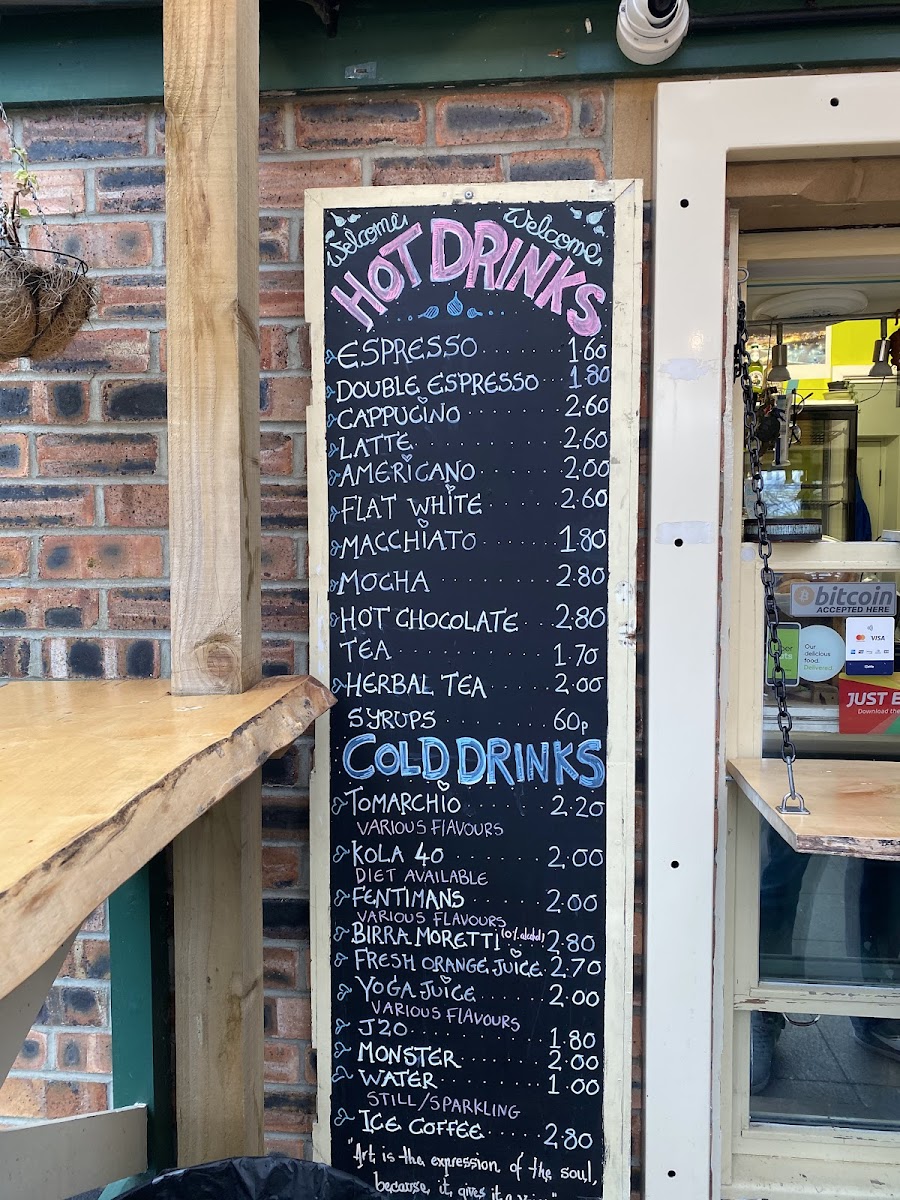 Welcome Welcome
HOT DRINKS
ESPRESSO 1.60
DOUBLE ESPRESSO 1.80
CAPPUCINO 2.60
LATTE 2.60
AMERICANO 2.00
FLAT WHITE 2.60
MACCHIATO 1.80
MOCHA 2.80
HOT CHOCOLATE 2.80
TEA 1.70
HERBAL TEA 2.00
SYRUPS 60p
COLD DRINKS
TOMARCHIO 2.20
VARIOUS FLAVOURS
KOLA 40 2.00
DIET AVAILABLE
FENTIMANS 2.00
VARIOUS FLAVOURS
BIRRA MORETTI 2.80
FRESH ORANGE JUICE 2.70
YOGA JUICE 2.00
VARIOUS FLAVOURS
J20 1.80
MONSTER 2.00
WATER 1.00
STILL/SPARKLING
ICE COFFEE 2.80
"Art is the expression of the soul,
because it gives it a
bitcoin
ACCEPTED HERE
Our
delicious
food.
Delivered.
VISA
JUST E
Download the